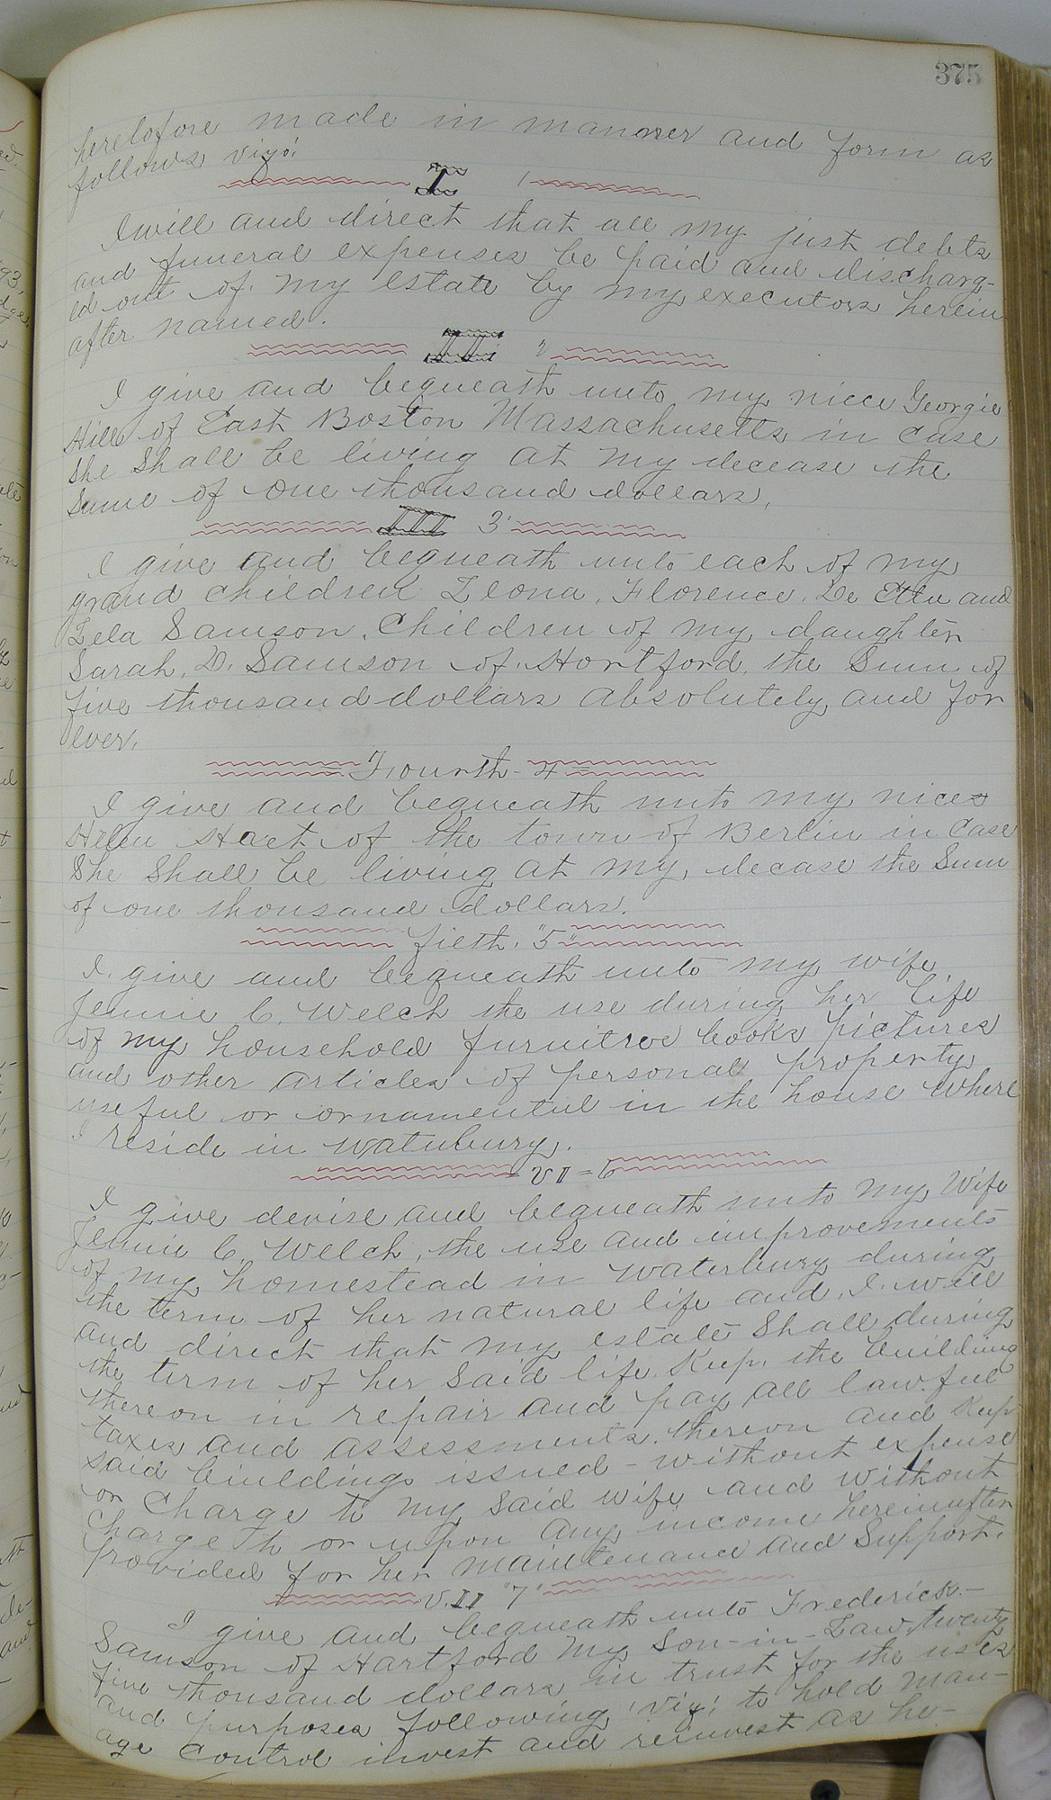 375
heretofore made in manner and form as
follows viz:
I 1
I will and direct that all my just debts
and funeral expenses be paid and discharg-
ed out of my estate by my executors herein
after named.
II 2
I give and bequeath unto my niece Georgie
Hill of East Boston Massachusetts in case
She Shall be living at my decease the
Sume of One thousand dollars.
III 3
I give and bequeath unto each of my
grand children Leona, Florence, De Etta and
Lela Samson, Children of my daughter
Sarah. D. Samson of Hortford, the Sum of
five thousand dollars absolutely and for
ever.
= Fourth - 4 =
I give and bequeath unto my nice
Helen Hart of the town of Berlin in Case
She Shall be living at my decase the Sum
of one thousand dollars.
fieth. "5"
I give and bequeath unto my wife
Jennie C. Welch the use during her life
of my household furnitroe books pictures
and other articles of personal property
useful or ornamental in the house where
I reside in Waterbury.
- VI - 6
I give devise and bequeath unto my Wife
Jennie C. Welch, the use and improvements
of my homestead in Waterbury during
the term of her natural life and I will
and direct that my estate Shall during
the term of her Said life Keep the building
thereon in repair and pay all lawful
taxes and assessments thereon and Keep
Said buildings issued - without expense
or Charge to my Said wife and without
Charge to or upon any income hereinafter
provided for her maintenance and Support.
VII "7"
I give and bequeath unto Frederick -
Samson of Hartford my Son-in-Law twenty
five thousand dollars in trust for the uses
and purposes following 'Viz' to hold man-
age Control invest and reinvest as he-